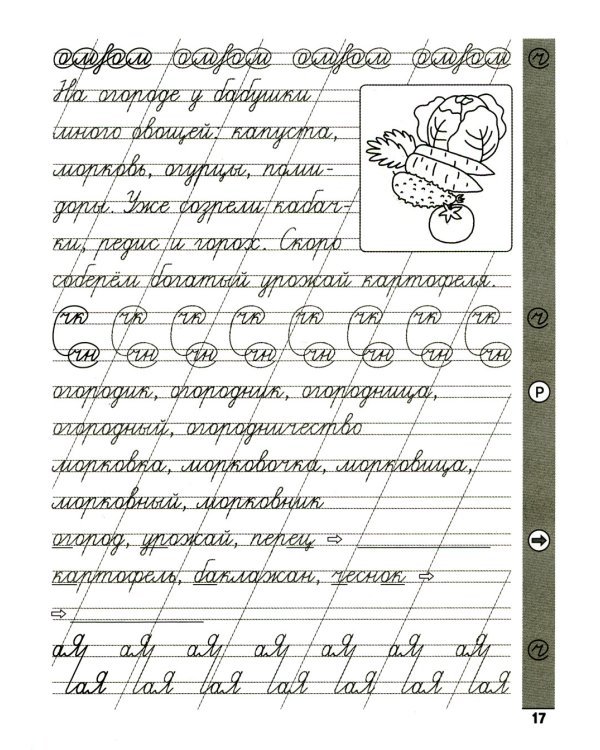 На огороде у бабушки
много овощей: капуста,
морковь, огурцы, поми-
доры. Уже созрели кабач-
ки, редис и горох. Скоро
соберём богатый урожай картофеля.
чк чк чк чк чк чк чк чк
чн чн чн чн чн чн чн чн
огородик, огородник, огородница,
Р
огородный, огородничество
морковка, морковочка, морковища,
морковный, морковник
огород, урожай, перец ⇨
картофель, баклажан, чеснок ⇨
⇨
аЯ аЯ аЯ аЯ аЯ аЯ аЯ
аЯ аЯ аЯ аЯ аЯ аЯ аЯ
17